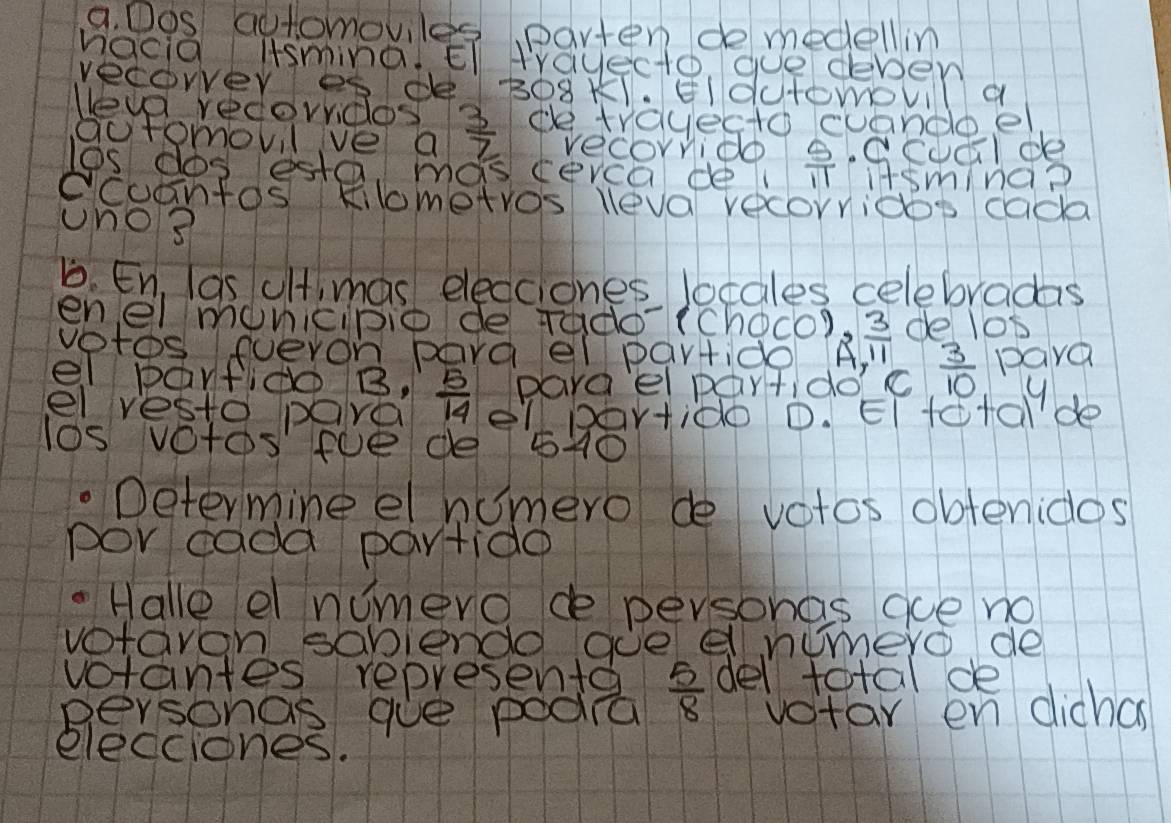 a. Dos automoviles parten de medellin
hacia Itsmina. El trayecto que deben
recorrer es de 308 Kl. El automovil a
lleva recorridos 3/7 de trayecto cuando el
automovil ve a recorrido 5/11. a cual de
los dos esta mas cerca de itsmina?
c cuantos kilometros lleva recorridos cada
uno?
b. En las ultimas elecciones locales celebradas
en el municipio de Tado (choco). 3/11 de los
votos fueron para el partido A, 3/10 para
el partido B, 5/14 para el partido C y
el resto para el partido D. El total de
los votos fue de
• Determine el número de votos obtenidos
por cada partido
• Halle el número de personas que no
votaron sabiendo que el número de
votantes representa 5/8 del total de
personas que podia votar en dichas
elecciones.